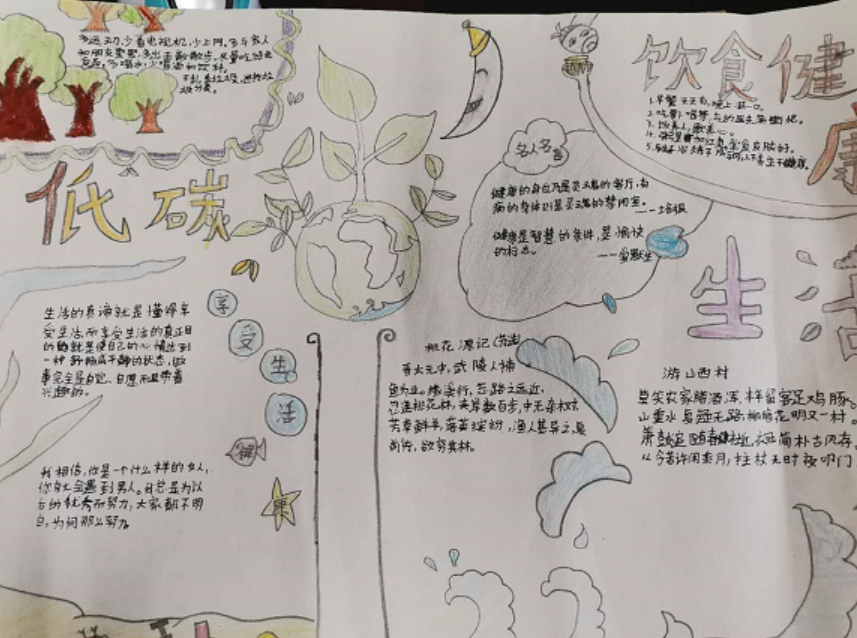 多运动,少看电视机,少上网。多与家人
和朋友聚聚,多出去散散步,尽量吃绿色
食品,多喝水,少喝酒和饮料。
不乱丢垃圾,进行垃
圾分类。
低碳
生活的真谛就是懂得享
受生活,而享受生活的真正目
的就是使自己的心情达到
一种舒畅
事完全是自觉、自愿而且带着
兴趣的。
享
受
生
活
健
康
我相信,你是一个什么样的女人,
你就会遇到男人。我总是为以
后的优秀而努力,大家都不明
白,为何那么努力。
名人名言
健康的身体乃是灵魂的客厅,有
病的身体则是灵魂的禁闭室。
——培根
健康是智慧的条件,是愉快
的标志。
——爱默生
桃花源记(节选)
晋太元中,武陵人捕
鱼为业。缘溪行,忘路之远近。
忽逢桃花林,夹岸数百步,中无杂树,
芳草鲜美,落英缤纷,渔人甚异之,复
前行,欲穷其林。
饮食健
康
1.早餐天天有,晚上
2.吃萝卜喝茶,气的医生满街爬。
3.饮养人,
4.
5.
生
活
游山西村
莫笑农家腊酒浑,丰年留客足鸡豚。
山重水复疑无路,柳暗花明又一村。
箫鼓追随春社近,衣冠简朴古风存。
从今若许闲乘月,拄杖无时夜叩门